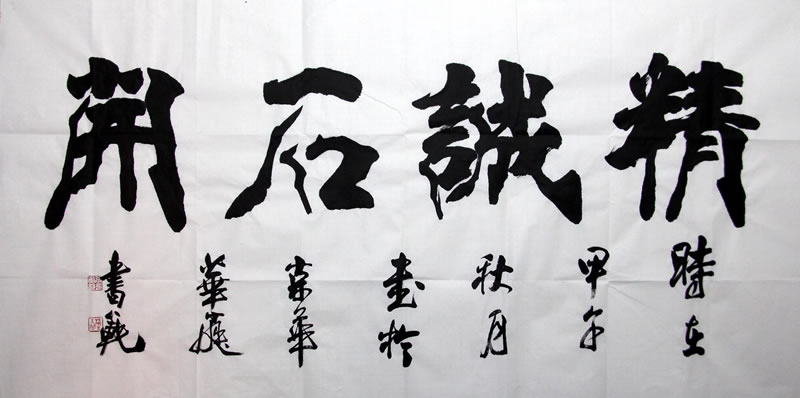 精誠石開
時在
甲午
秋月
書於
京華
華巖
書範